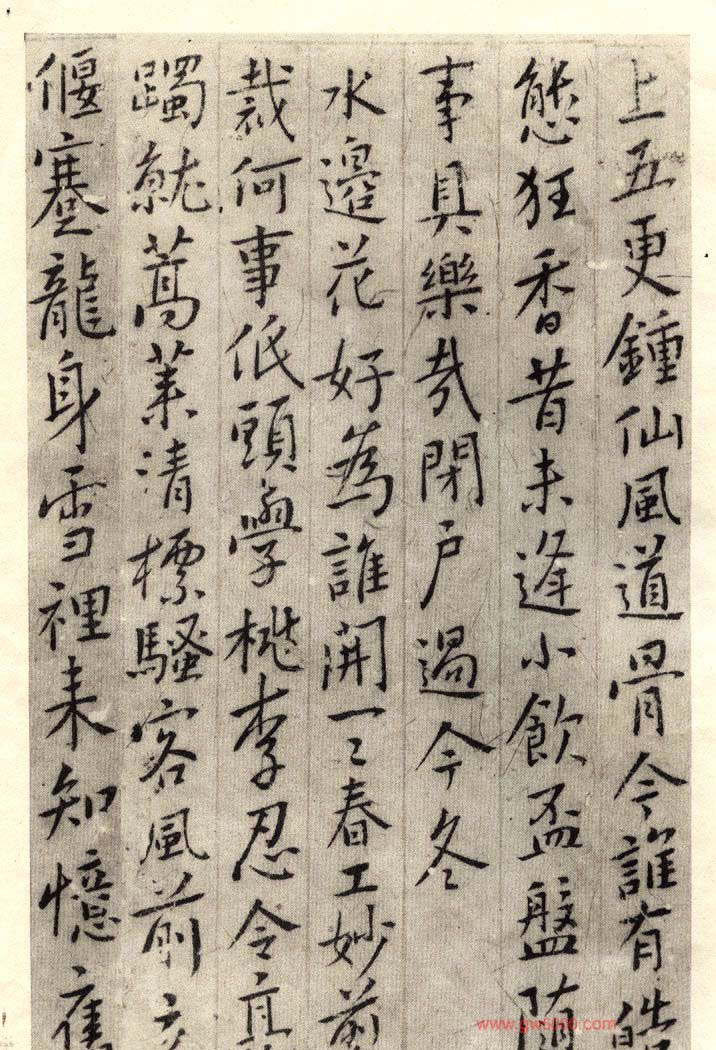 上五更鍾仙風道骨今誰有皓
態狂香昔未逢小飲盃盤随
事具樂哉閉戶過今冬
水邊花好為誰開一〻春工妙
裁何事低頭學桃李忍令
躅就蒿萊清標騷客風前
偃蹇龍身雪裡来知憶舊